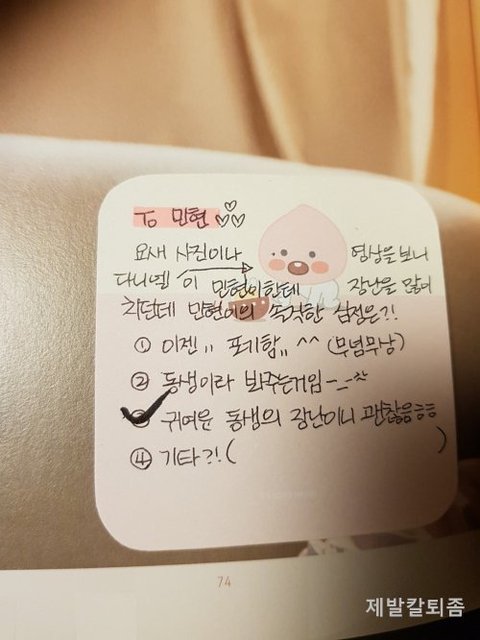 To 민현 ♡♡♡
요새 사진이나 영상을 보니
다니엘이 민현이한테 장난을 많이
치던데 민현이의 솔직한 심정은?!
① 이젠,, 포기함,, ^^ (무념무상)
② 동생이라 봐주는거임 -_-
③ 귀여운 동생의 장난이니 괜찮음ㅎㅎ
④ 기타?! ( )
74
제발칼퇴좀